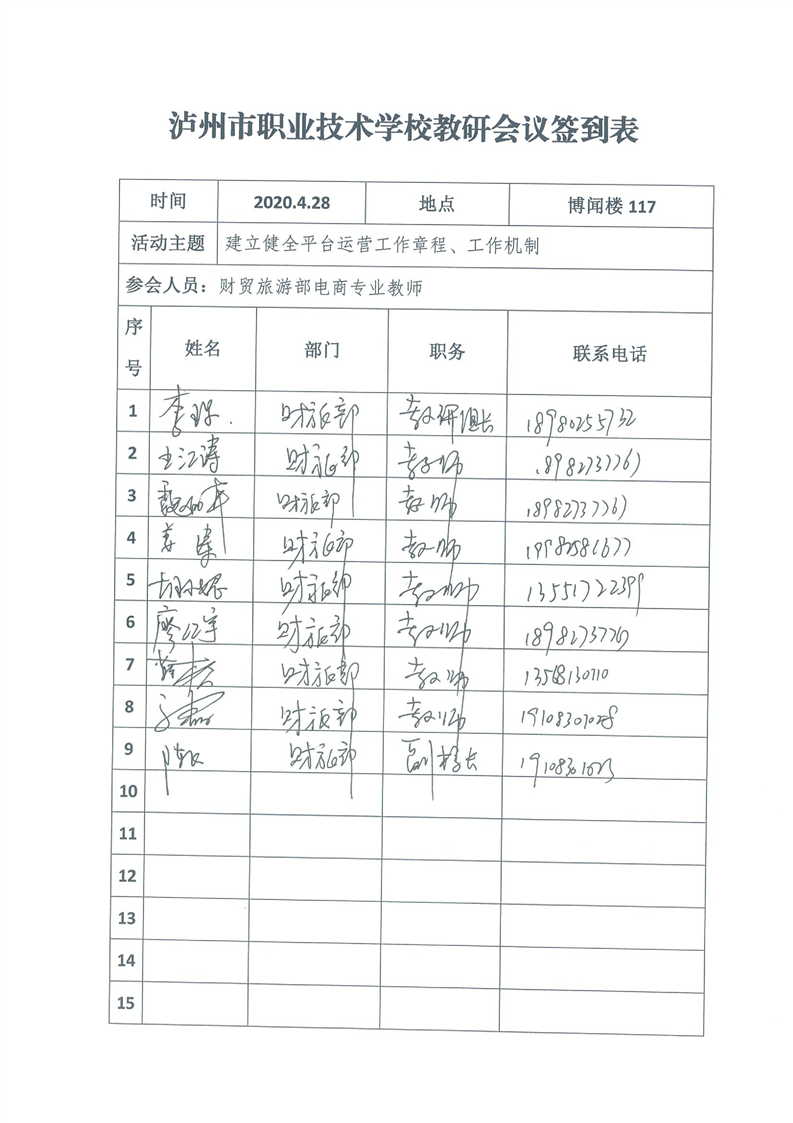 泸州市职业技术学校教研会议签到表
时间 2020.4.28 地点 博闻楼 117
活动主题 建立健全平台运营工作章程、工作机制
参会人员：财贸旅游部电商专业教师
序号 姓名 部门 职务 联系电话
1 李 财旅部 教研组长 18980255732
2 王江涛 财旅部 教师 18982737761
3 财旅部 教师 18982737761
4 姜 财旅部 教师 19982581677
5 胡 财旅部 教师 13551722399
6 廖江宇 财旅部 教师
7 财旅部 教师
8 财旅部 教师 19108301028
9 财旅部 副校长 19108301023
10
11
12
13
14
15